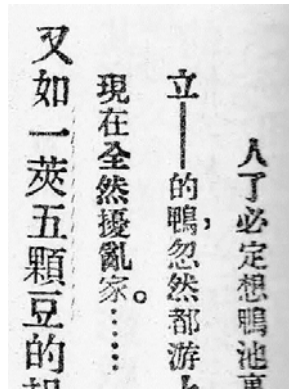 人了必定想鴨池裏
立——的鴨，忽然都游
現在全然擾亂家。……
又如一莢五顆豆的